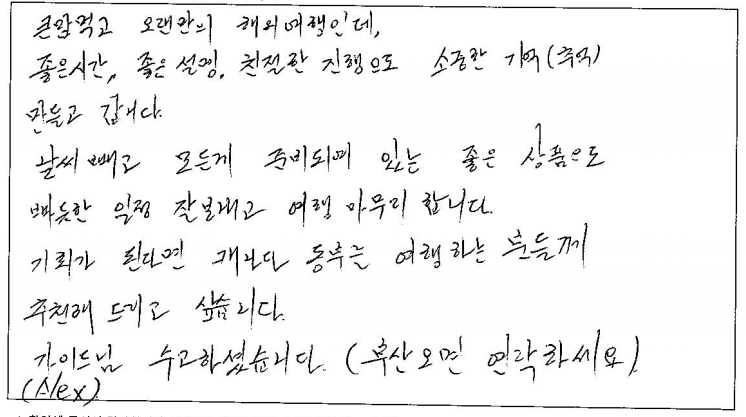 큰맘먹고 오랜만의 해외여행인데,
좋은시간, 좋은 설명, 친절한 진행으로 소중한 기억(추억)
만들고 갑니다.
날씨 빼고 모든게 준비되어 있는 좋은 상품으로
빠듯한 일정 잘보내고 여행 마무리 합니다.
기회가 된다면 캐나다 동부를 여행하는 분들께
추천해 드리고 싶습니다.
가이드님 수고하셨습니다. (부산오면 연락하세요)
(Alex)